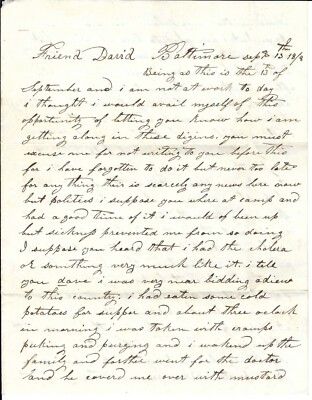 Friend David Baltimore Sept. 13th
Being as this is the 13 of
September and i am not at work to day
i thought i would avail myself of this
opportunity of letting you know how i am
getting along in these digins, you must
excuse me for not writing to you before this
for i have forgotten to do it but never too late
for any thing their is scarcely any news here now
but politics i suppose you where at camp and
had a good time of it i would of been up
but sickness prevented me from so doing
I suppose you heard that i had the cholera
or something very much like it. i tell
you dave i was very near bidding adiew
to this country, i had eaten some cold
potatoes for supper and about three oclock
in morning i was taken with cramps
puking and purging and i wakend up the
family and farther went for the doctor
and he coverd me over with mustard